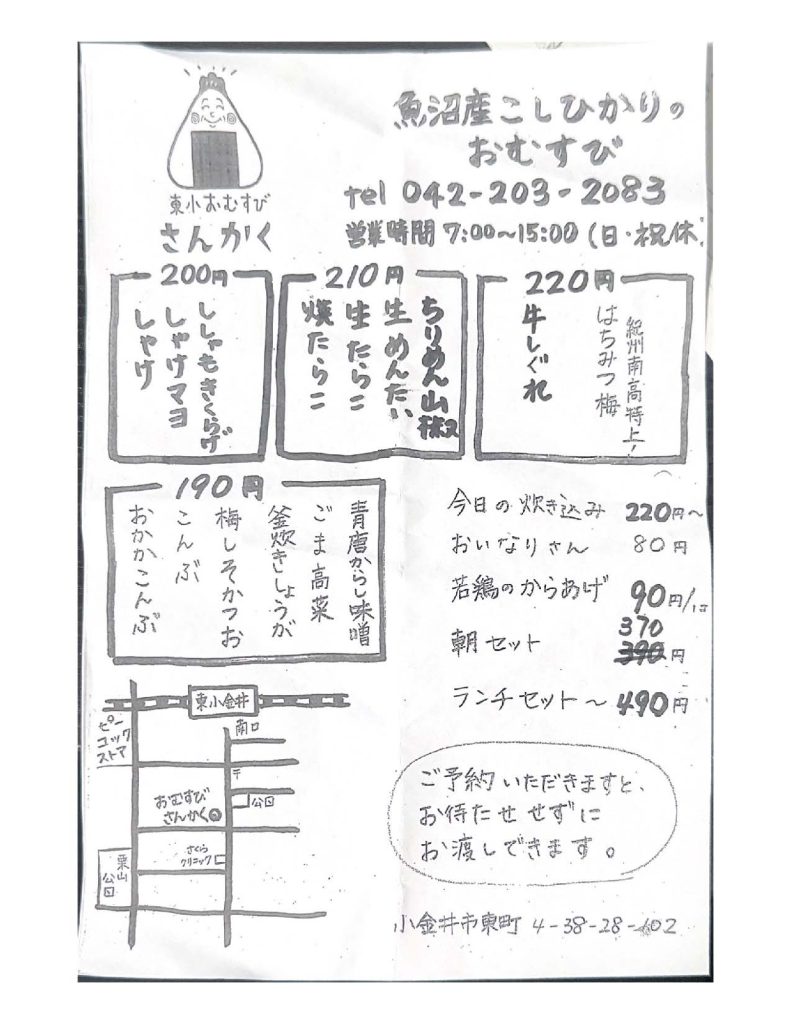 東小おむすび
さんかく
魚沼産こしひかりの
おむすび
tel 042-203-2083
営業時間 7:00〜15:00 (日・祝休
200円
ししゃもきくらげ
しゃけマヨ
しゃけ
210円
ちりめん山椒
生めんたい
生たらこ
焼たらこ
220円
紀州南高特上!
はちみつ梅
牛しぐれ
190円
青唐からし味噌
ごま高菜
釜炊きしょうが
梅しそかつお
こんぶ
おかかこんぶ
今日の炊き込み 220円〜
おいなりさん 80円
若鶏のからあげ 90円/1コ
370
朝セット 390円
ランチセット〜 490円
東小金井
南口
ピー
コック
ストア
〒
公園
おむすび
さんかく
さくら
クリニック
栗山
公園
ご予約いただきますと、
お待たせせずに
お渡しできます。
小金井市東町 4-38-28-102